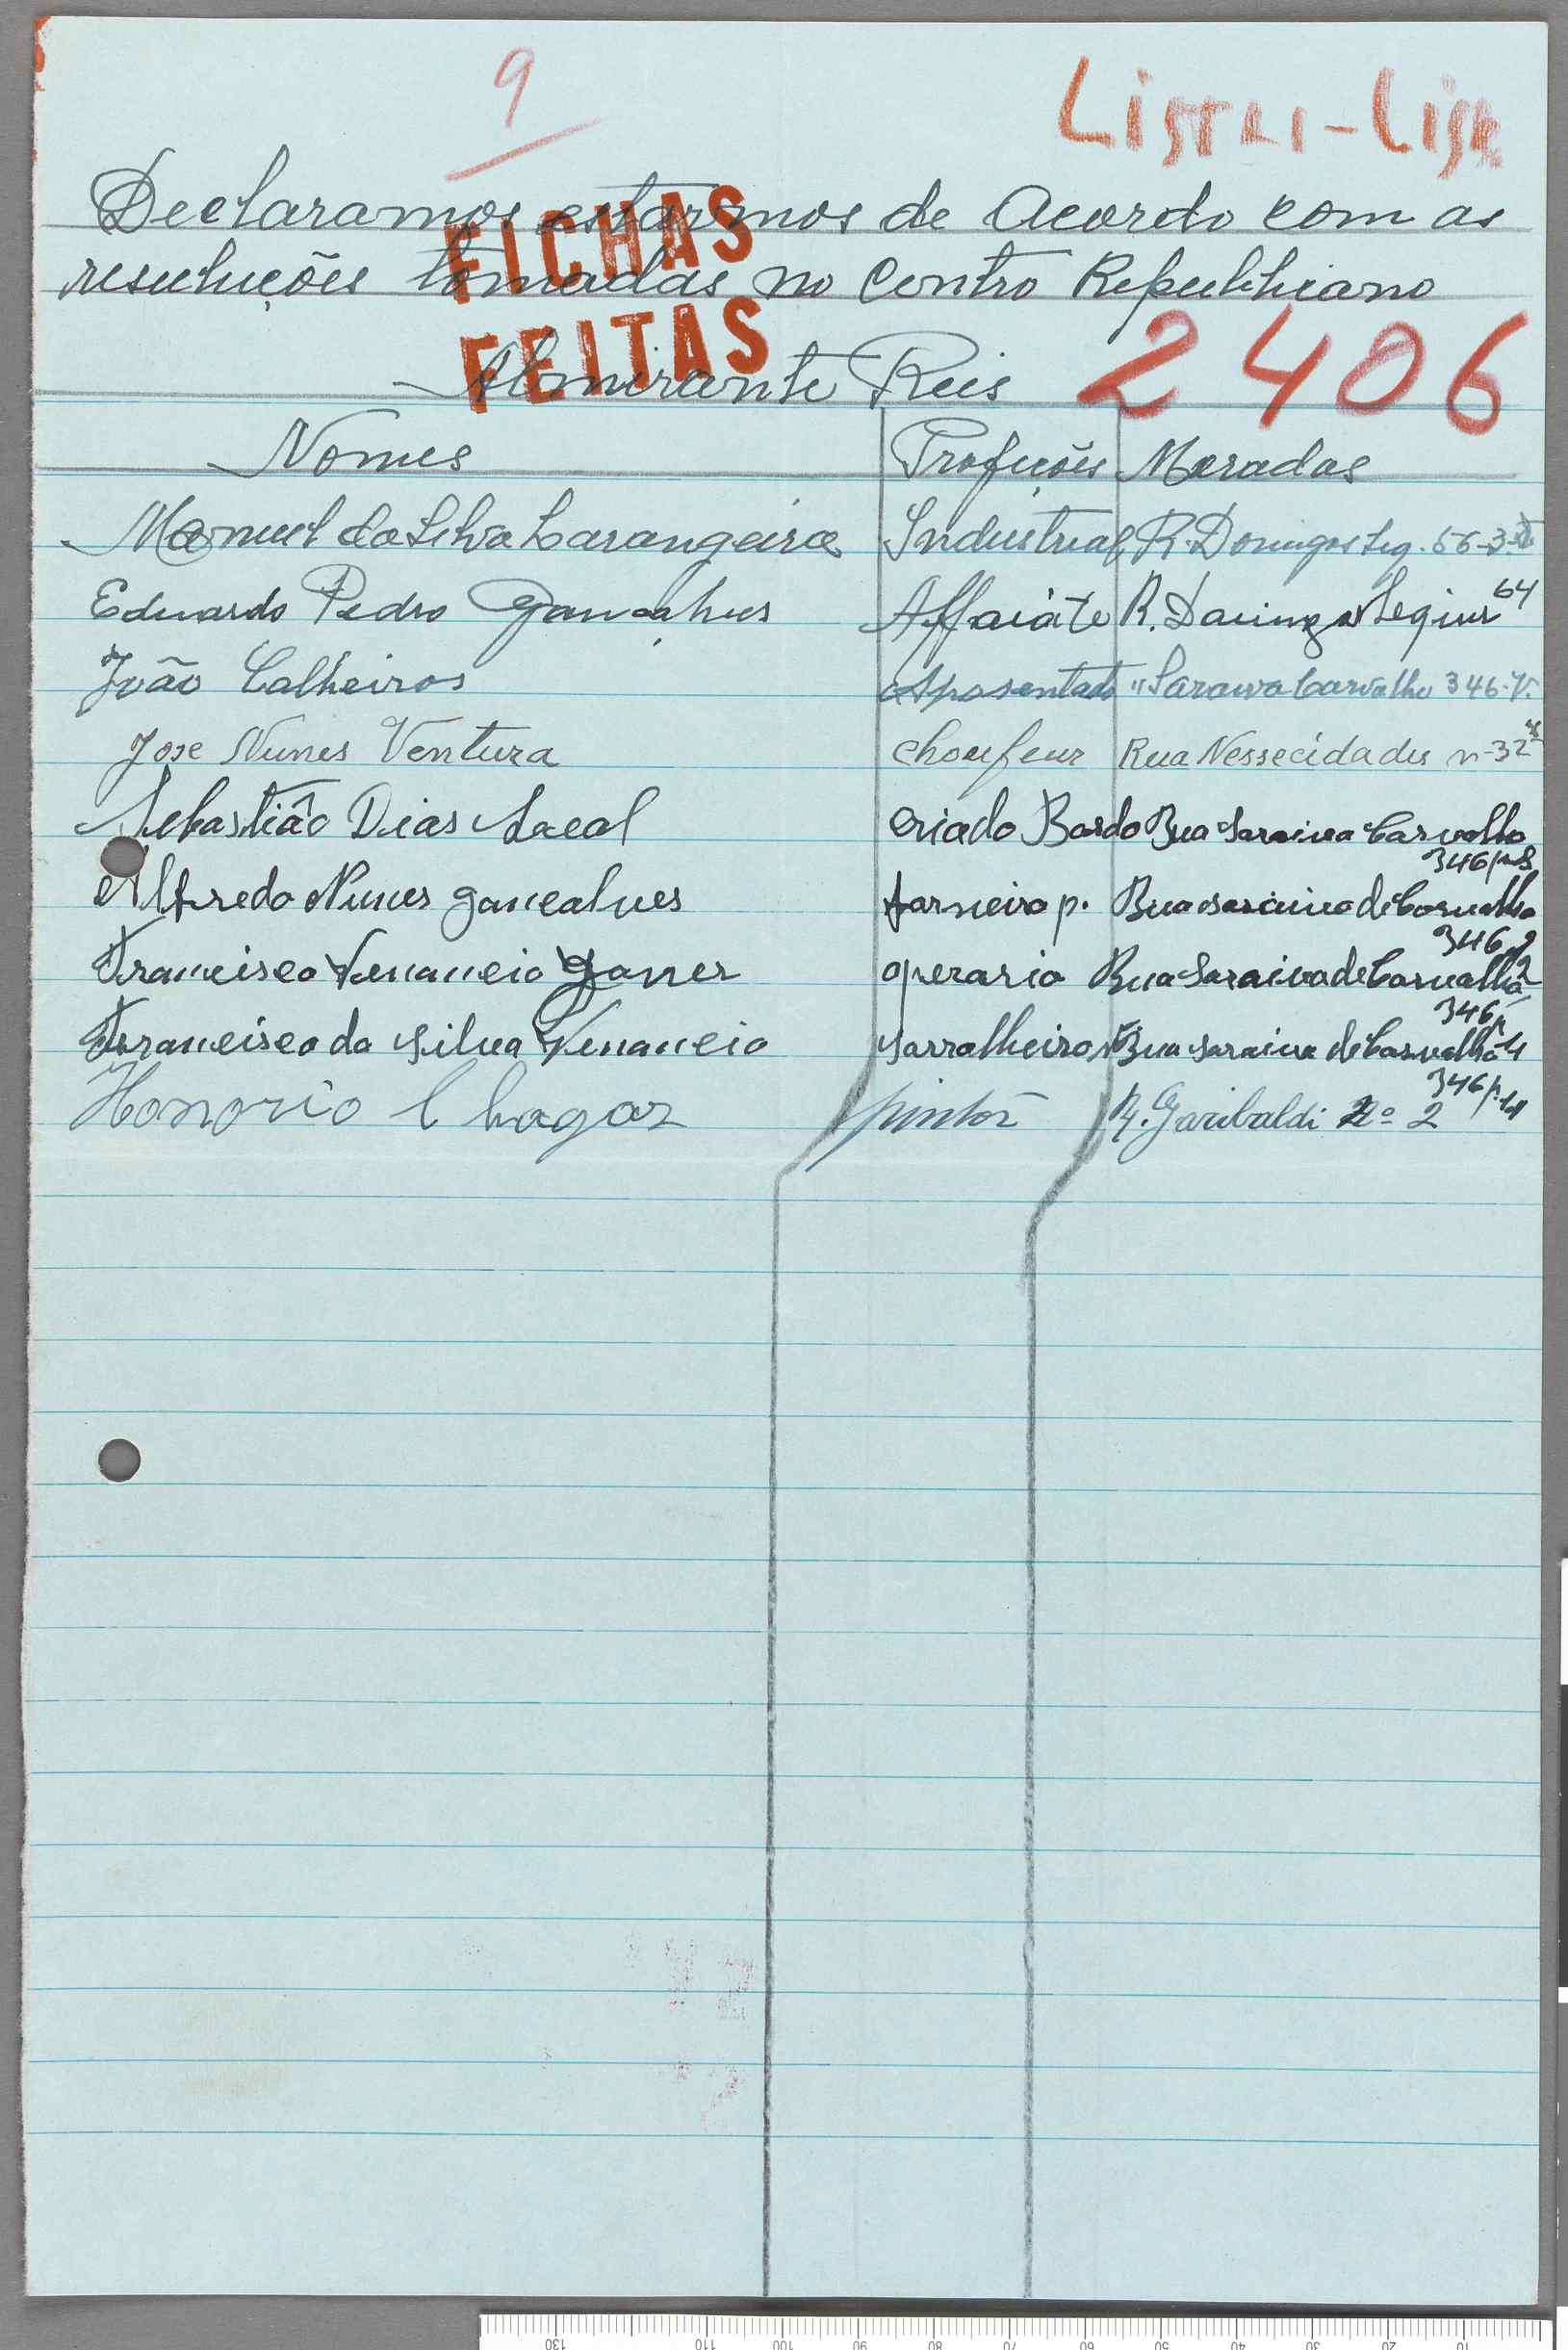 9
Declaramos estarmos de Acordo com as
resuluções tomadas no Centro Republiciano
FICHAS
FEITAS
Almirante Reis
2406
Nomes Profições Moradas
Manuel da Silva Larangeira Industrial R. Domingos Seq. 56-3º
Eduardo Pedro Gonçalves Alfaiate R. Domingos Seqiur 64
João Calheiros Aposentado " Saraiva Carvalho 346
Jose Nunes Ventura Choufeur Rua Nessecidades n-32
Sebastião Dias Lacal Criado Bordo Rua Saraiva Carvalho
346
Alfredo Nunes goncalves torneiro p. Rua saraiva de Carvalho
346
Francisco Venancio gomes operario Rua Saraiva de Carvalho
346
Francisco da silva Venancio sarralheiro Rua saraiva de Carvalho
346
Honorio Chagas pintor R. Garibaldi nº 2